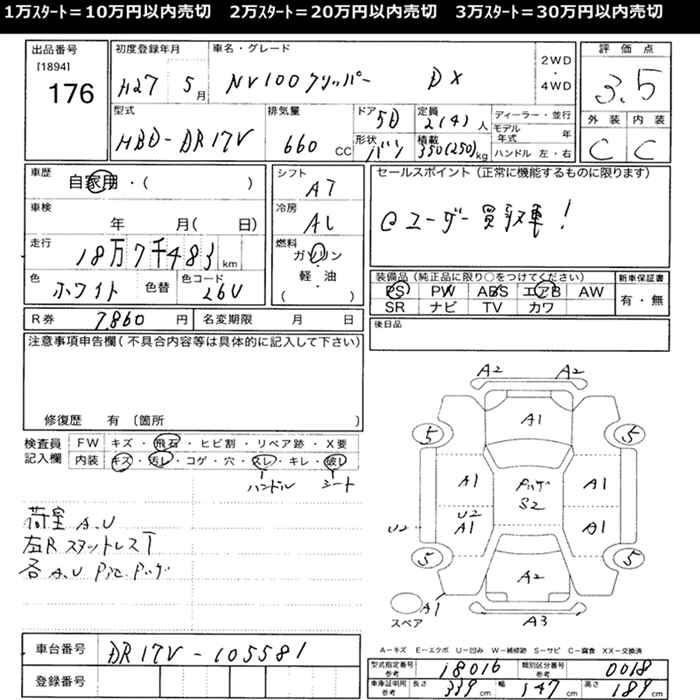 1万ｽﾀｰﾄ＝10万円以内売切　2万ｽﾀｰﾄ＝20万円以内売切　3万ｽﾀｰﾄ＝30万円以内売切
出品番号
[1894]
176
初度登録年月
H27 5月
車名・グレード
NV100クリッパー DX
2WD
・
4WD
評価点
3.5
型式
HBD-DR17V
排気量
660 CC
ドア
5D
形状
バン
定員
2(4)人
積載
350(250)kg
ディーラー・並行
モデル年式　年
ハンドル 左・右
外装 内装
C C
車歴
自家用・(　　　)
車検
年　月(　日)
走行
18万7千483 km
色
ホワイト 色替
色コード
26U
シフト
AT
冷房
AC
燃料
ガソリン
軽・油
(　　)
セールスポイント（正常に機能するものに限ります）
@ユーザー買取車！
装備品（純正品に限り○をつけてください）
PS PW ABS エアB AW
SR ナビ TV カワ
新車保証書
有・無
R券 7860円 名変期限　月　日
後日品
注意事項申告欄（不具合内容等は具体的に記入して下さい）
修復歴　有（箇所　　）
検査員記入欄
FW キズ・飛石・ヒビ割・リペア跡・X要
内装 キズ・汚レ・コゲ・穴・スレ・キレ・破レ
ハンドル シート
荷室 A.U
左R スタットレスT
各 A.U
A2 A2
A1
5 5
A1 A1
S2
U2
U2 A1 A1
5 5
A2
A1
スペア
A3
車台番号 DR17V-105581
登録番号
A－キズ　E－エクボ　U－凹み　W－補修跡　S－サビ　C－腐食　XX－交換済
型式指定番号 参考 18016 類別区分番号 参考 0018
車庫証明用 参考 長さ 339cm 幅 147cm 高さ 189cm